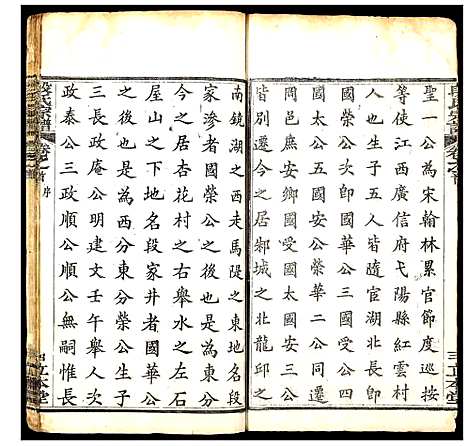 聖一公為宋翰林累官節度巡按
等使江西廣信府弋陽縣紅雲村
人生子五人皆隨宦湖北長國受
國榮公次即國華公三國受公四
國太公五國安公榮華二公同遷
岡邑廡安鄉國受國太國安三公
皆別遷之居邾城之北龍邱之
南鏡湖之西走馬隄之東地名段
家滲者國榮公之後也是為東分
今之居杏花村之右舉水之左石
屋山之下地名段家井者國華公
之後也是為西分東分榮公生子
三長政庵公明建文壬午舉人次
政泰公三政順公順公無嗣惟長
段氏宗譜
卷之首
序
三立本堂